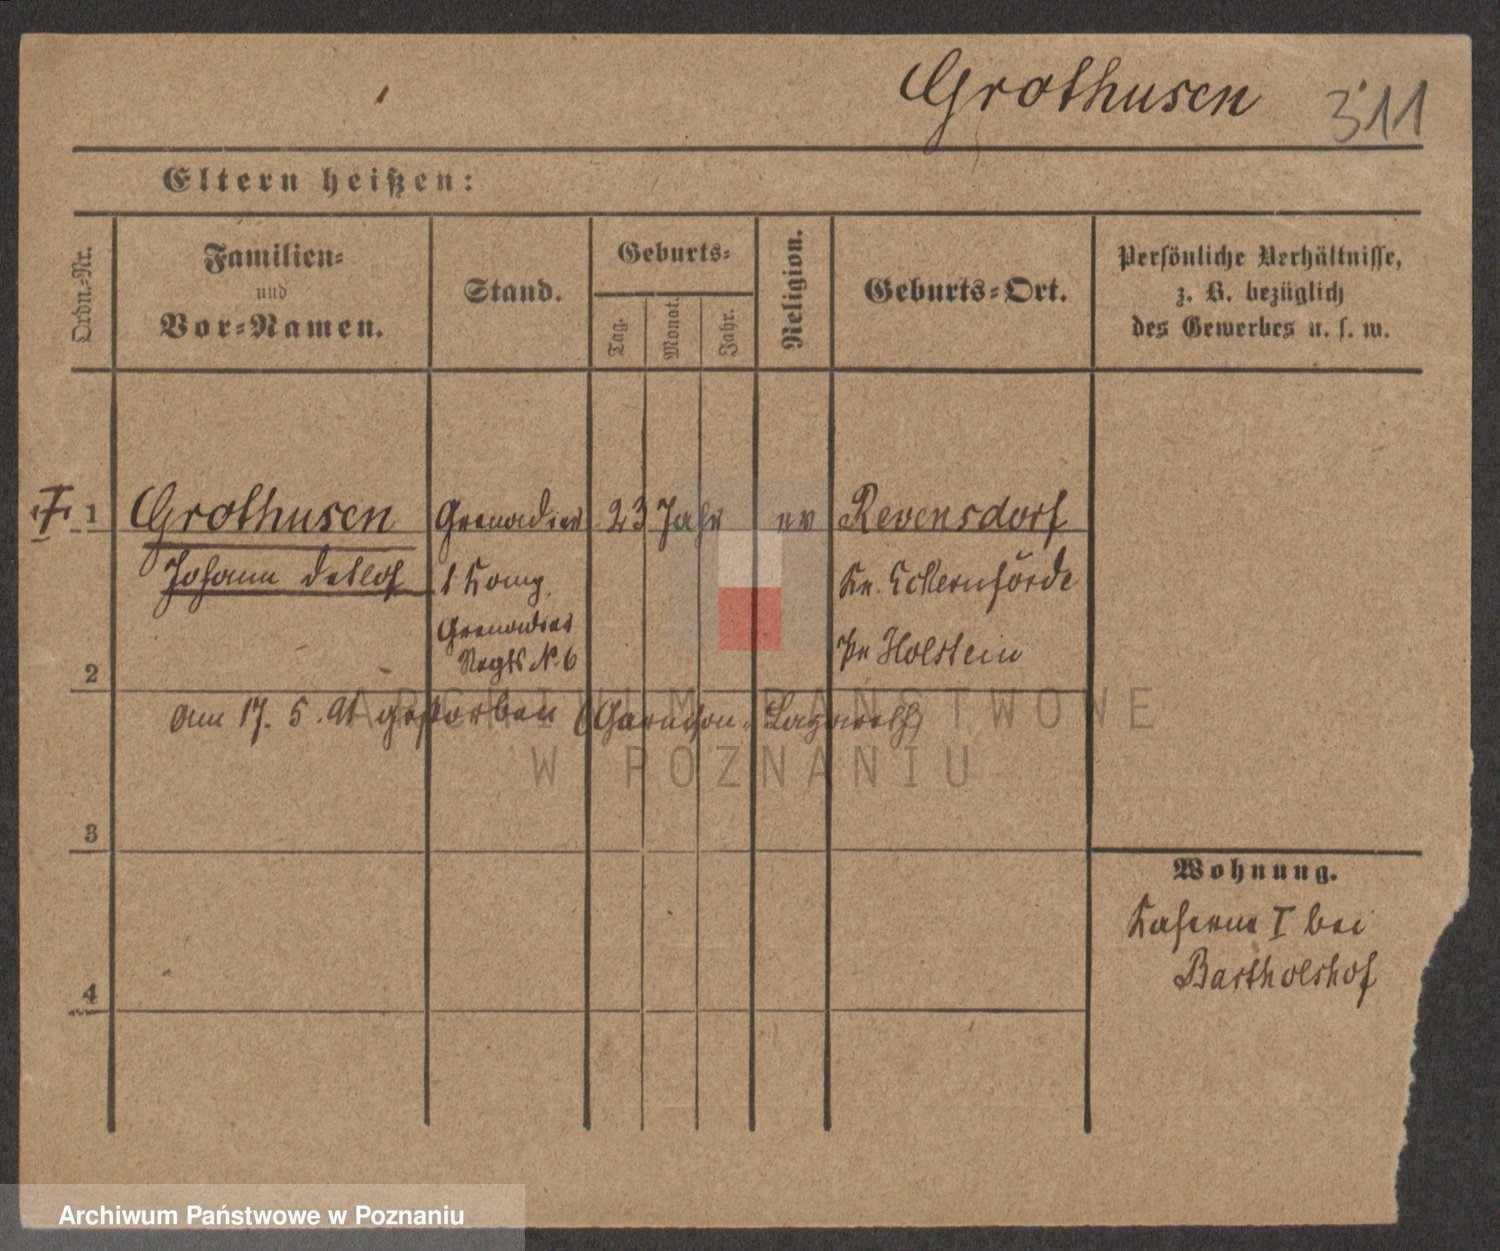 Grothusen 311
Eltern heißen:
Ordn.-Nr.
Familien-
und
Vor-Namen.
Stand.
Geburts-
Tag.
Monat.
Jahr.
Religion.
Geburts-Ort.
Persönliche Verhältnisse,
z. B. bezüglich
des Gewerbes u. s. w.
1 Grothusen Grenadier 23 Jahr ev Revensdorf
Johann Detlof 1 Komp. Kr. Eckernförde
Grenadier
Regts N. 6 Holstein
2
am 17. 5. 91 gestorben (Garnison-Lazareth)
3
Wohnung.
Kaserne I bei
Bartholshof
4
ARCHIWUM PAŃSTWOWE
W POZNANIU
Archiwum Państwowe w Poznaniu